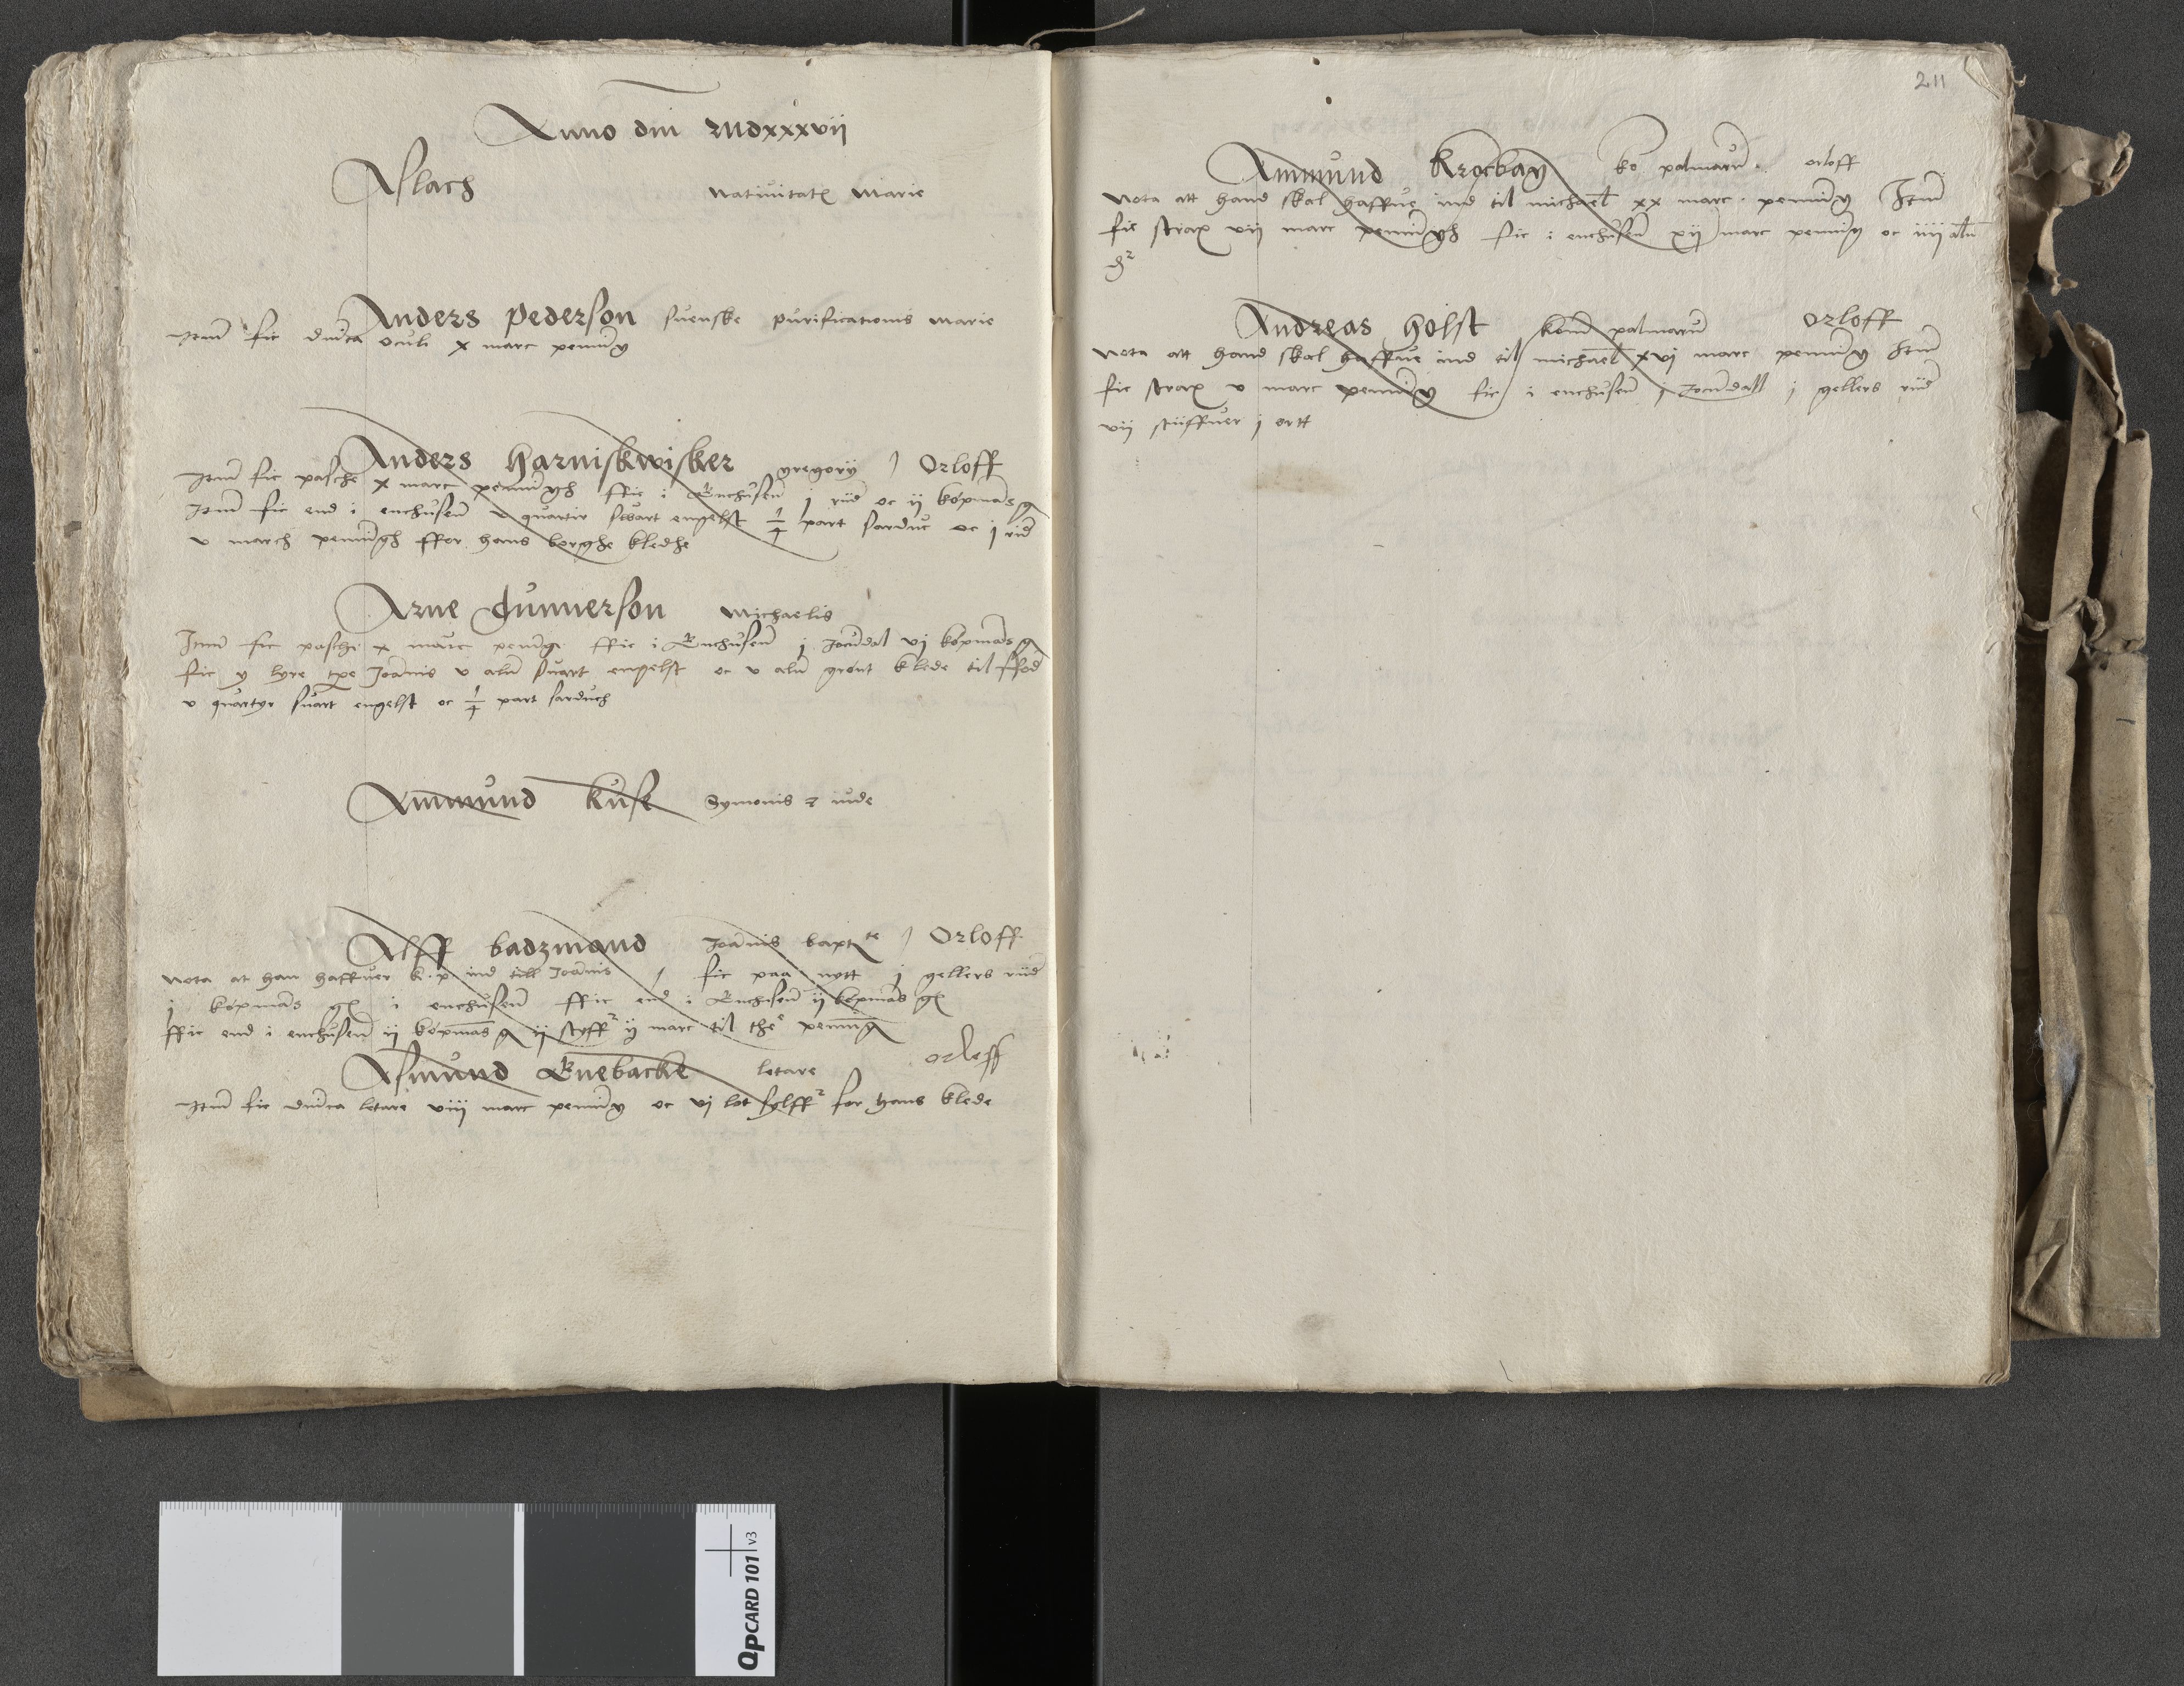 Anno dni Mdxxxvii
Aslach nativitatis Marie
Anders Pederson suenske purificationis Marie
Item fic dnica oculi x marc penning
Anders Harniskwisker gregorij Orloff
Item fic pasche x marc penningh ffic i Enchusen j rijd oc ij kopmans g
Item fic end i enchusen v quartir swart engelst 1/4 part sarduc oc j rid
v march penningh ffor hans borghe kledhe
Arne Gunnerson Michaelis
Item fic pasche x marc peninge ffic i Enchusen j Jocundal vj kopmans g
fic y lyre tpe Joannis v alen suart engelst oc v alen grønt klede til ffod
v quartyr suart engelst oc 1/4 part sarduch
Ammund Kuse Symonis & iude
Alff badzmand Joannis baptte Orloff
Nota at han haffuer k.p. ind till Joannis fic paa nytt j gellers rijd
j kopmans g i enchusen ffic end i Enchusen ij kopmans g
ffic end i enchusen ij kopmans g ij styff ij marc til the penning
Asmund Enebacke letare orloff
Item fic dnica letare viij marc penning oc vj lot sylff for hans klede
211
Ammund Krocbag ko palmarum orloff
Nota att hand skal haffue ind til michael xx marc penning Item
fic strax vij marc penningh fic i enchusen xij marc penning oc iiij alen
Andreas Holst kom palmarum Orloff
Nota att hand skal haffue ind til michael xvj marc penning Item
fic strax v marc penning fic i enchusen j Jocundall j gellers rijd
vij stuffuer j ortt
QpCARD 101 v3